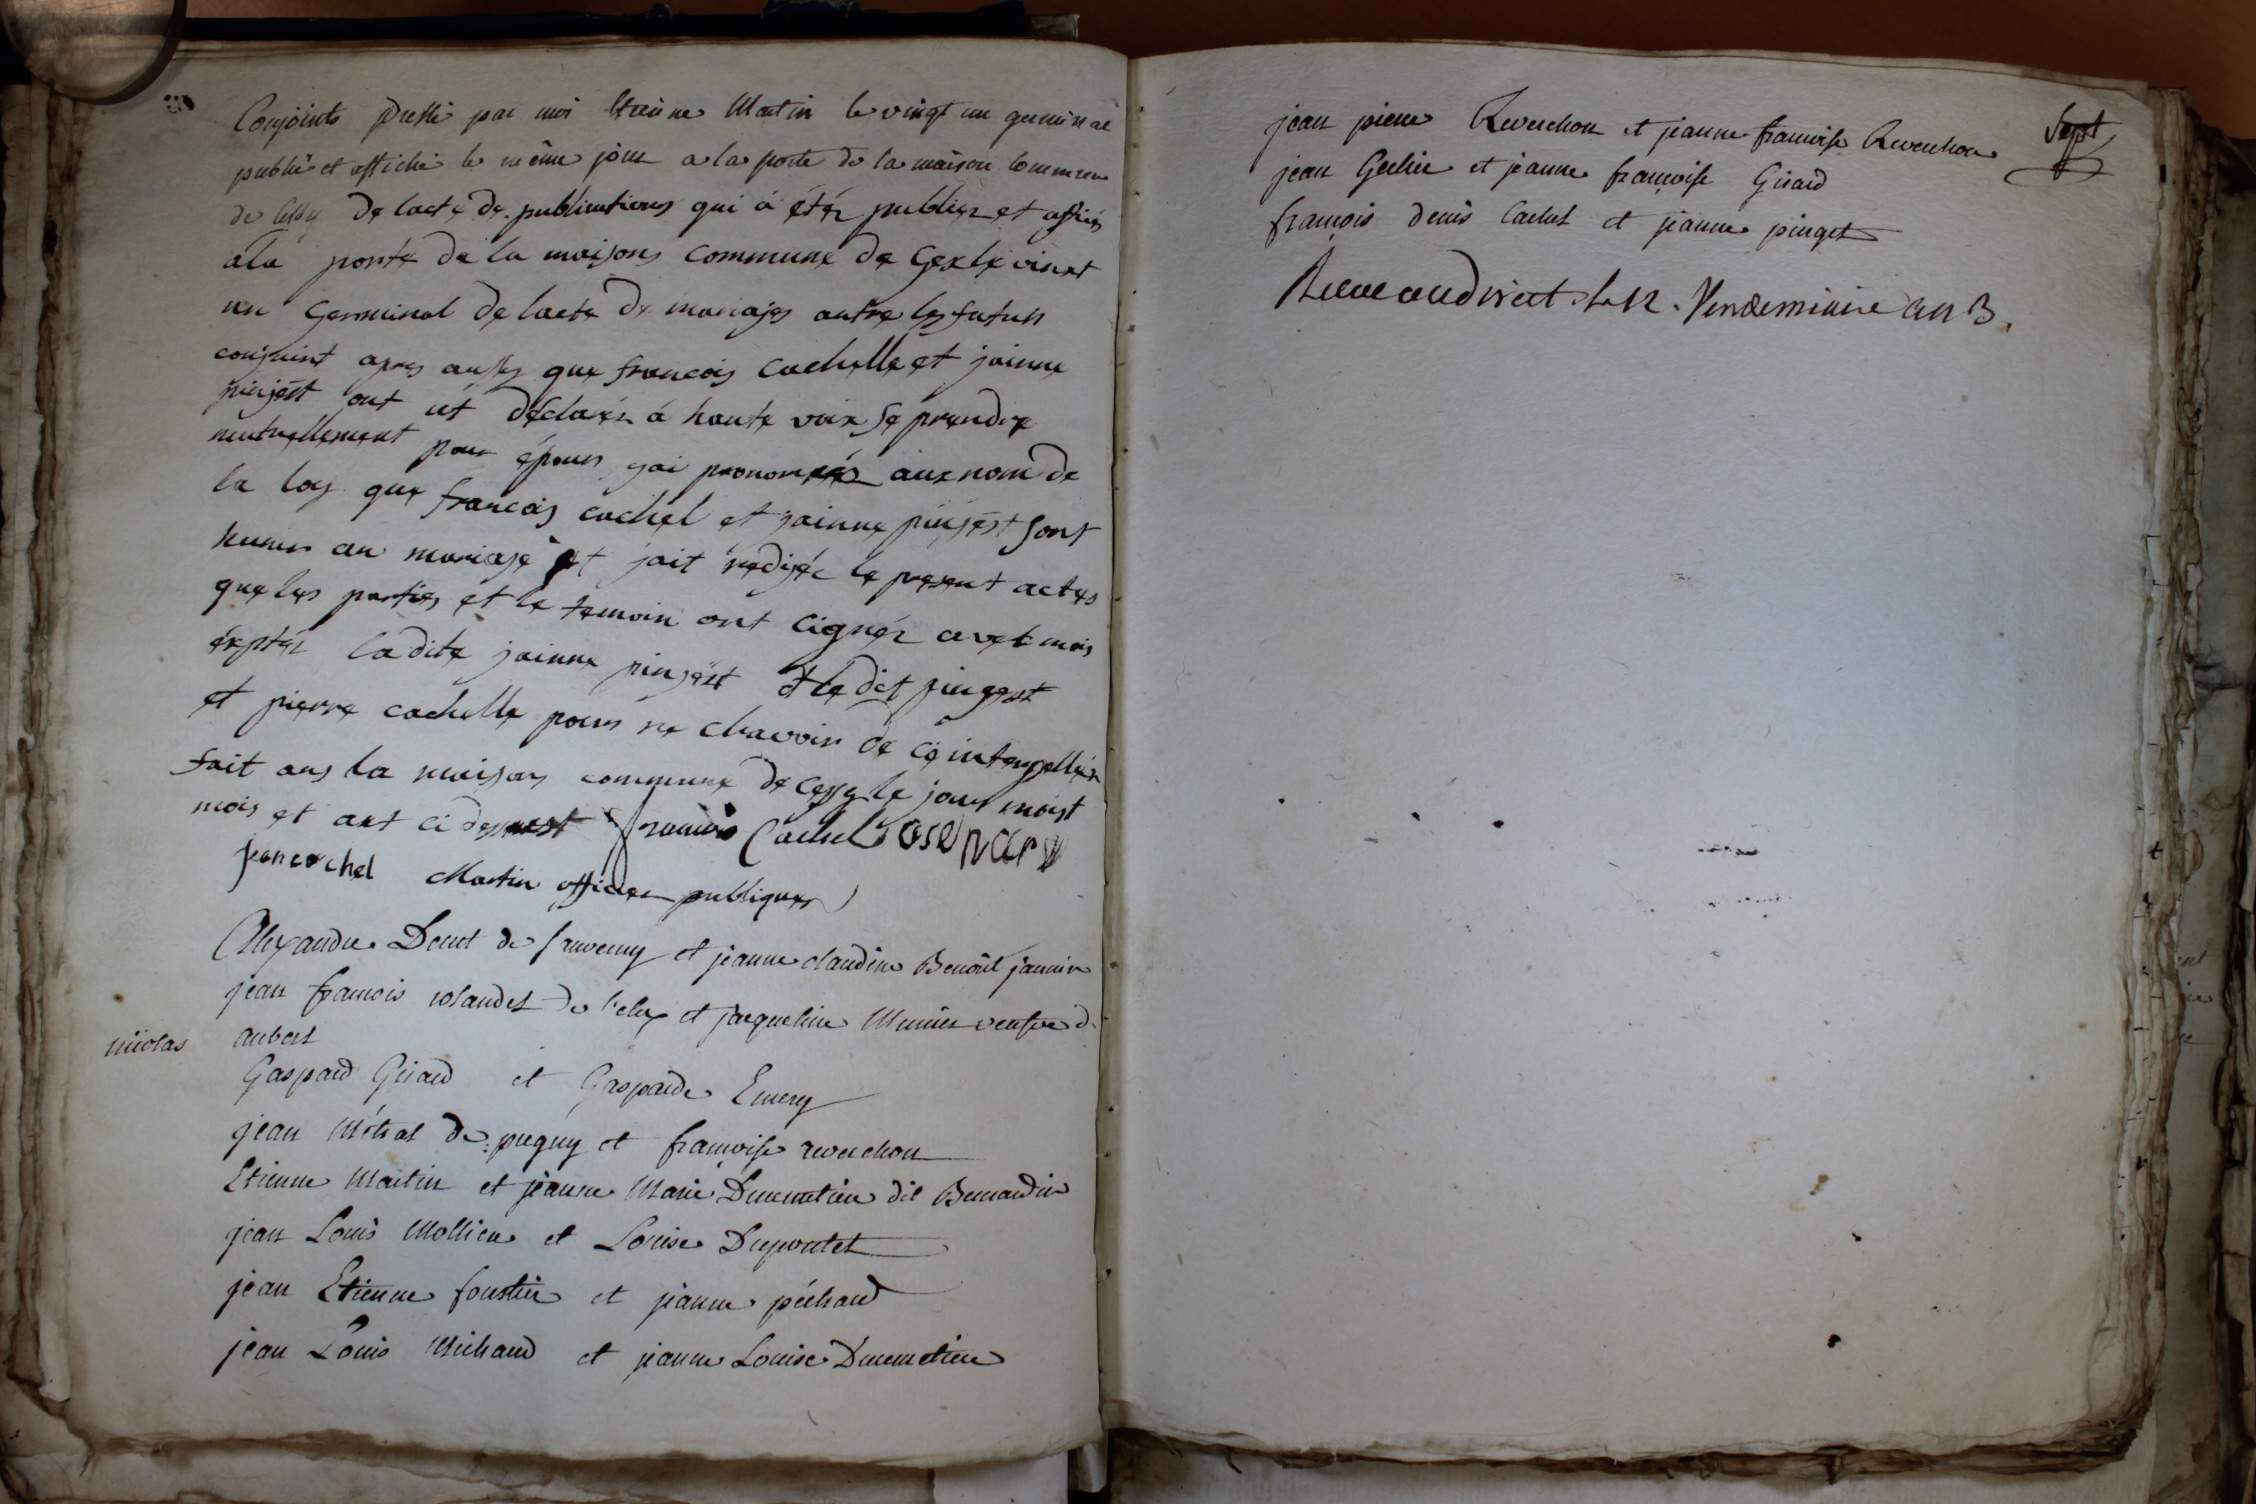 Conjoints Dressé par moi Etienne Martin le vingt un germinal
publié et affiché le même jour a la porte de la maison Commune
de Cessy De lacte De publications qui à étéz publiez et affiés
ala porte de la maisons Commune de Gex le vinxt
un Germinal De lacte De mariajes antre les futurs
conjoint apres que francois cachelle et jainne
pinjest ont ut déclaréz à haute voix se prendre
mutuellement pour épous jai prononcéz aux nom de
la loy que francois cachel et jainne pinjest sont
hunis an mariaje et jait redijéz le present actes
que les parties et le temoin ont cignéz avet mois
éxptéz la dite jainne pinjest et le dit pingest
et pierre cachelle pours ne chavoir de ce interpelléz
fait ans la maisons commune de Cessy le jour moist
mois et ant ci desus francois Cachel
jean cachel Martin officier publiques
Alexandre Ducret de Sauverny et jeanne claudine Benoit jannin
jean francois rolandet de et jacqueline Munier veufve d.
nicolas aubert
Gaspard Girard et Gasparde Emery
jean Métral de pregny et francoise reverchon
Etienne Martin et jeanne Marie Dumetier dit Bernardin
jean Louis Mollien et Louise Dupontet
jean Etienne foustier et jeanne péchaud
jean Louis Michaud et jeanne Louise Dumetier
Sept
jean pierre Reverchon et jeanne francoise Reverchon
jean Gerlier et jeanne francoise Girard
francois denis Cachet et jeanne pinget
le 12. Vendemiaire an 3.